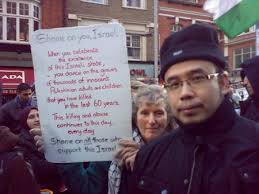 Shame on you, Israel
When you celebrate
the existence
of this Israeli state,
you dance on the graves
of thousands of innocent
Palestinian adults and children
that you have killed
in the last 60 years
This killing and abuse
continues to this day...
every day
Shame on all those who
support this Israel
ADA